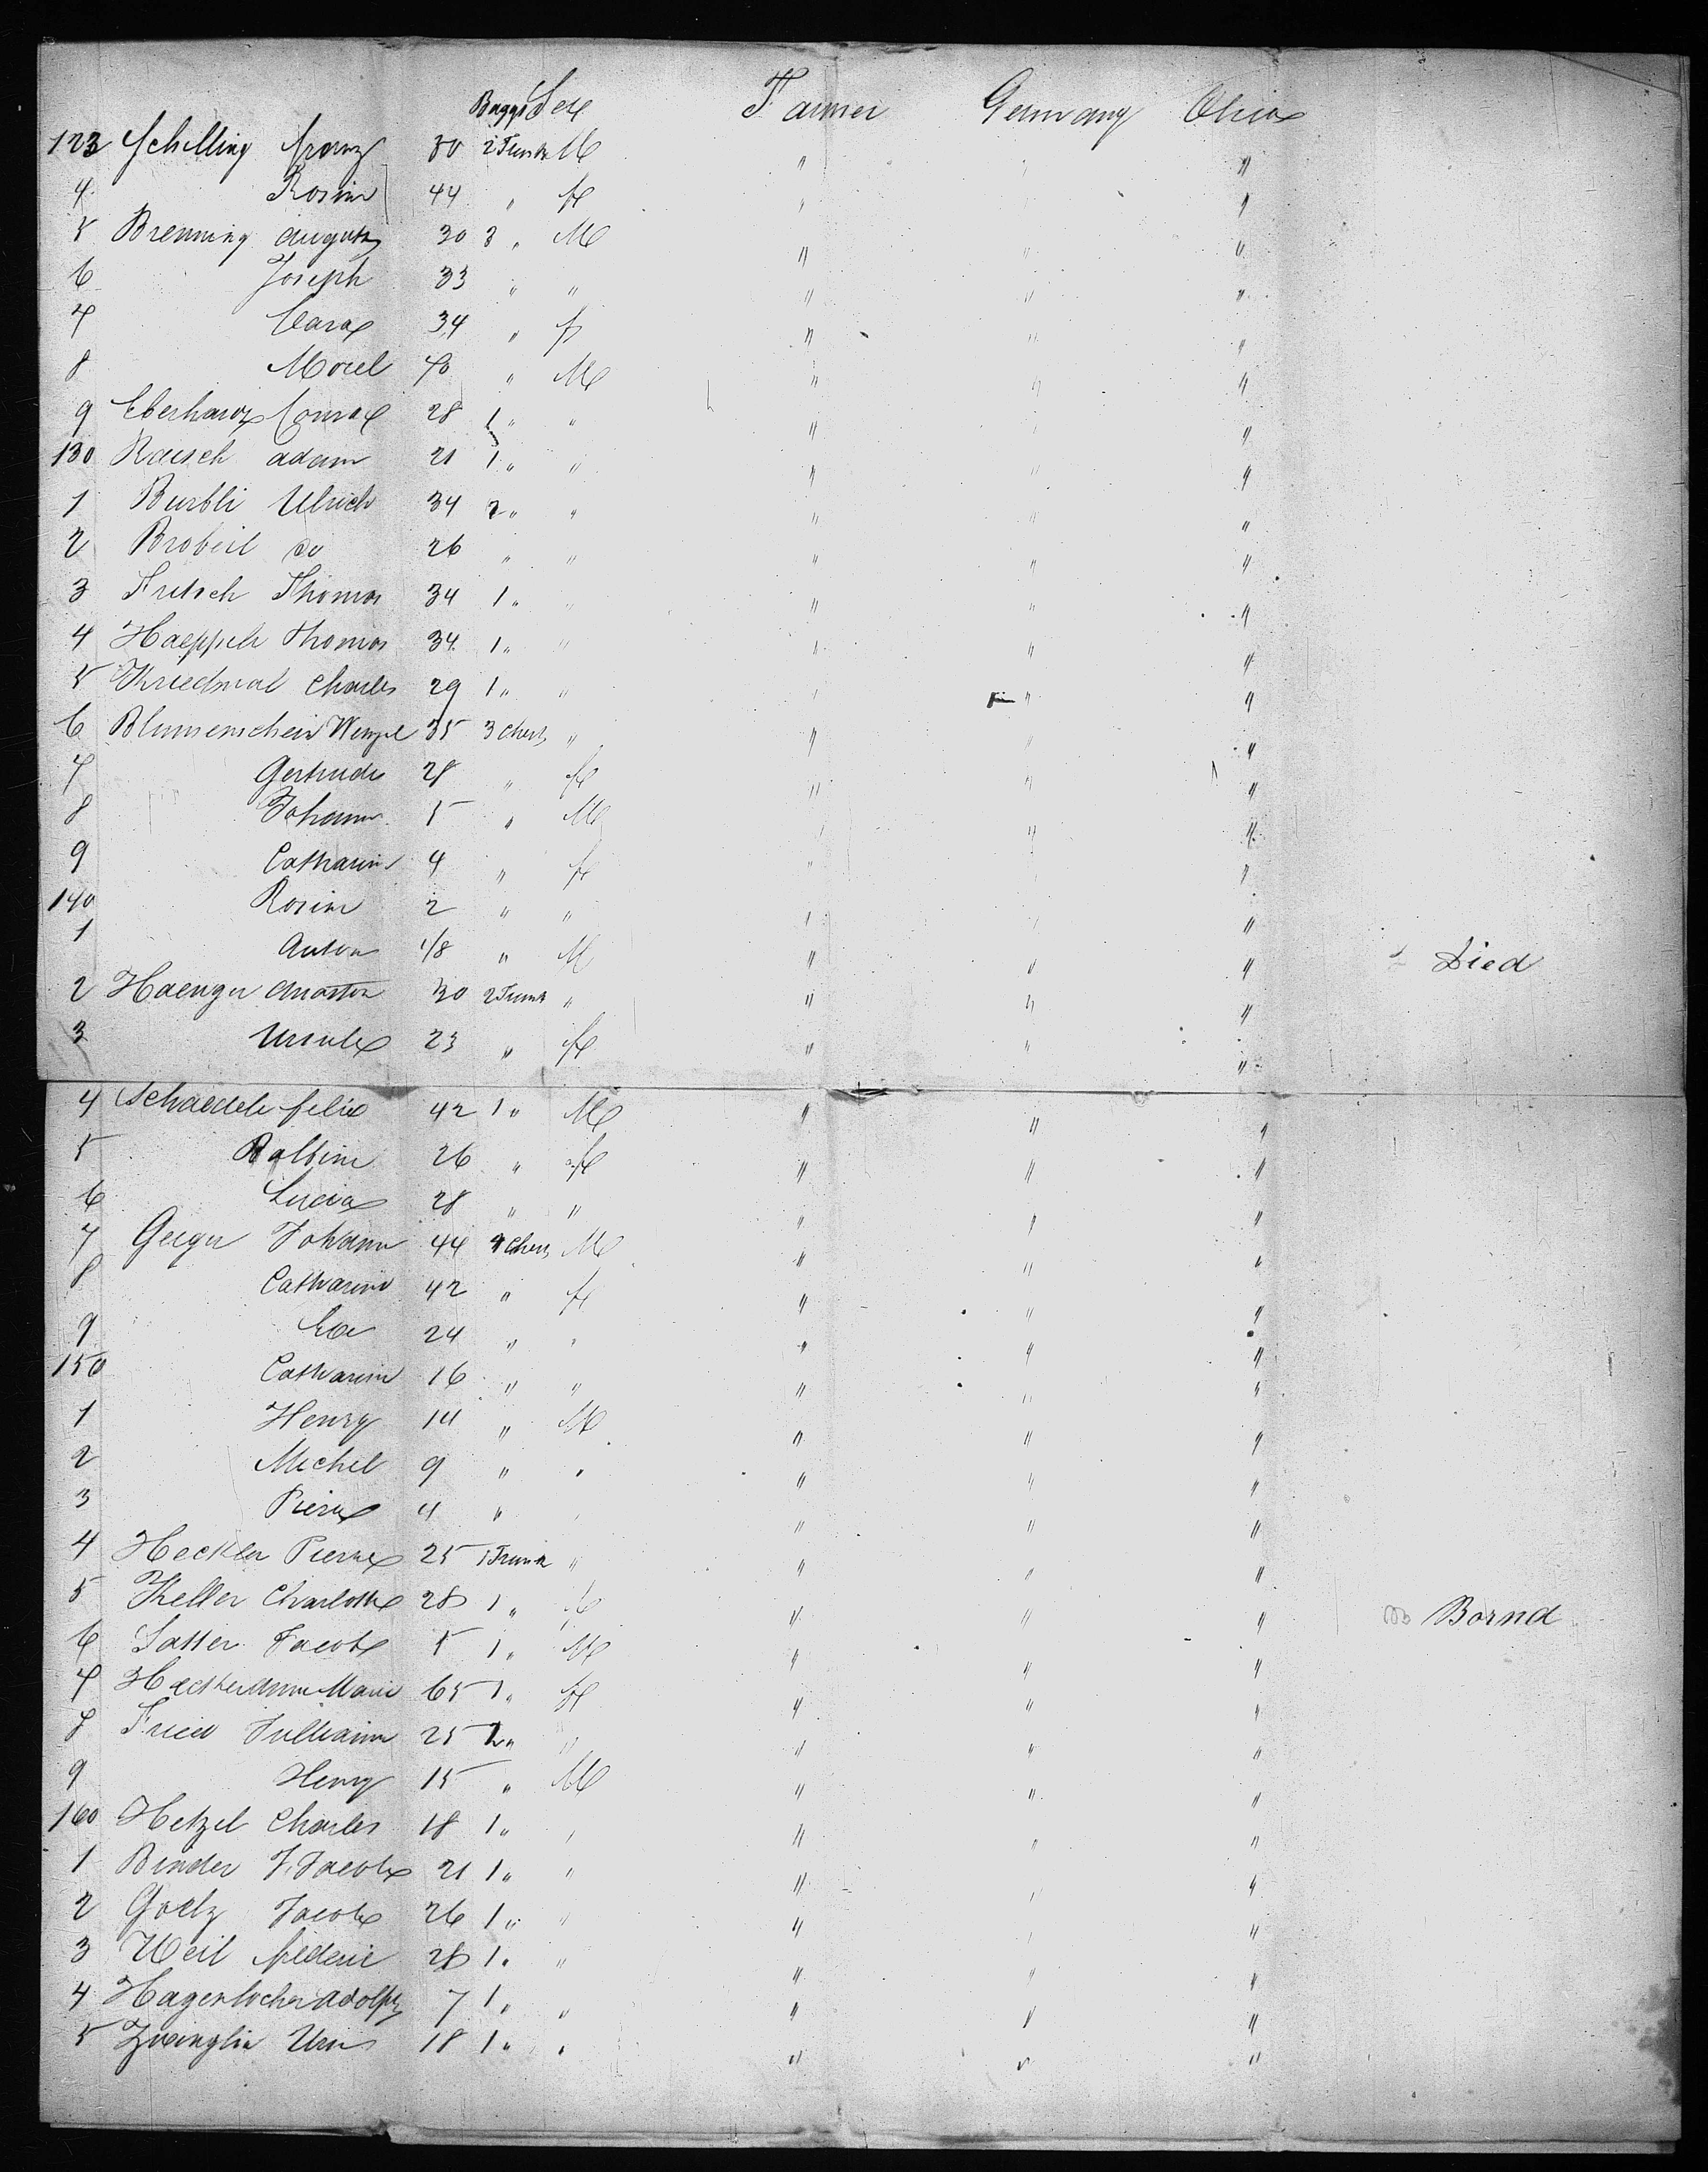 Bagge Sex Farmer Germany Ohio
123 Schilling Franz 30 2 Trunk M " " "
4 Rosine 44 " f " " "
5 Brenning August 30 3 " M " " "
6 Joseph 33 " " " " "
7 Clara 34 " f " " "
8 40 " M " " "
9 Eberhard Conrad 28 1 " " " " "
130 Rausch adam 21 1 " " " " "
1 Ulrich 34 2 " " " " "
2 Brobeil do 26 " " " " "
3 Fritsch Thomas 34 1 " " " " "
4 Thomas 34 1 " " " " "
5 Charles 29 1 " " " " "
6 Blumenschein Wenzel 35 3 Chests " " " "
7 Gertrude 28 " f " " "
8 Johann 5 " M " " "
9 Catharine 4 " f " " "
140 Rosine 2 " " " " "
1 Anton 1/8 " M " " " Died
2 Haenger 30 2 Trunk " " " "
3 Ursule 23 " f " " "
4 Schaedele felix 42 1 " M " " "
5 Balbine 26 " f " " "
6 Lucia 28 " " " " "
7 Geiger Johann 44 Chests M " " "
8 Catharine 42 " f " " "
9 Eve 24 " " " " "
150 Catharine 16 " " " " "
1 Henry 14 " M " " "
2 Michel 9 " " " " "
3 Pierre 4 " " " " "
4 Heckler Pierre 25 1 Trunk " " " "
5 Keller Charlotte 28 1 " f " " " Bornd
6 Satter Jacob 5 1 " M " " "
7 Marie 65 1 " f " " "
8 Fried 25 2 " " " " "
9 Henry 15 " M " " "
160 Hetzel Charles 18 1 " " " " "
1 Binder J. Jacob 21 1 " " " " "
2 Goetz Jacob 26 1 " " " " "
3 Weil frederic 28 1 " " " " "
4 Hagenlocher Adolph 7 1 " " " " "
5 18 1 " " " " "